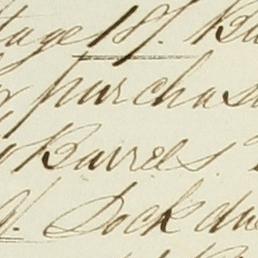 tage 18/. Ba
purchas
Barrels.
Dock du